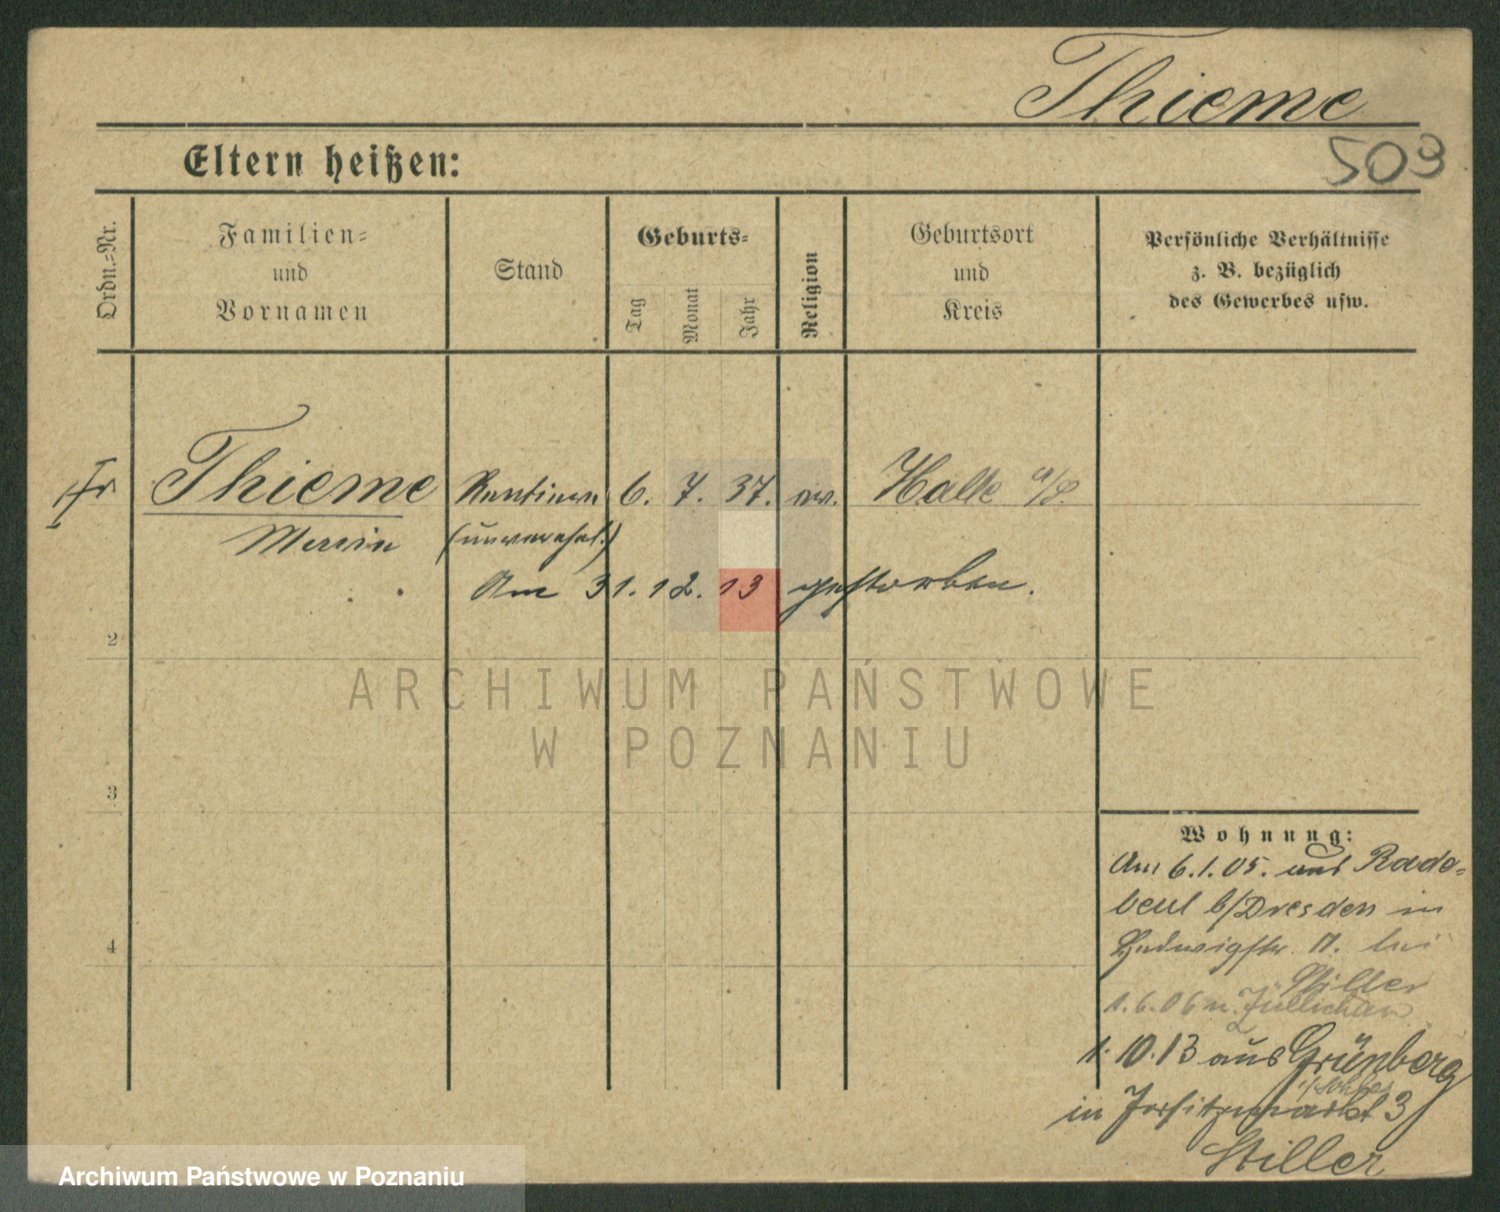 Thieme
509
Eltern heißen:
Ordn.-Nr.
Familien-
und
Vornamen
Stand
Geburts-
Tag
Monat
Jahr
Religion
Geburtsort
und
Kreis
Persönliche Verhältnisse
z. B. bezüglich
des Gewerbes usw.
Fr Thieme Rentiere 6. 7. 37. ev. Halle a/S.
(unverehel.)
Am 31. 12. 13 gestorben.
2
ARCHIWUM PAŃSTWOWE
W POZNANIU
3
Wohnung:
Am 6.1.05. aus Rade-
beul b/Dresden in
4
Hedwigstr. 11. bei
Stiller
1.6.06 n. Züllichau
1.10.13 aus Grünberg
i/Schles
in 3
Stiller
Archiwum Państwowe w Poznaniu